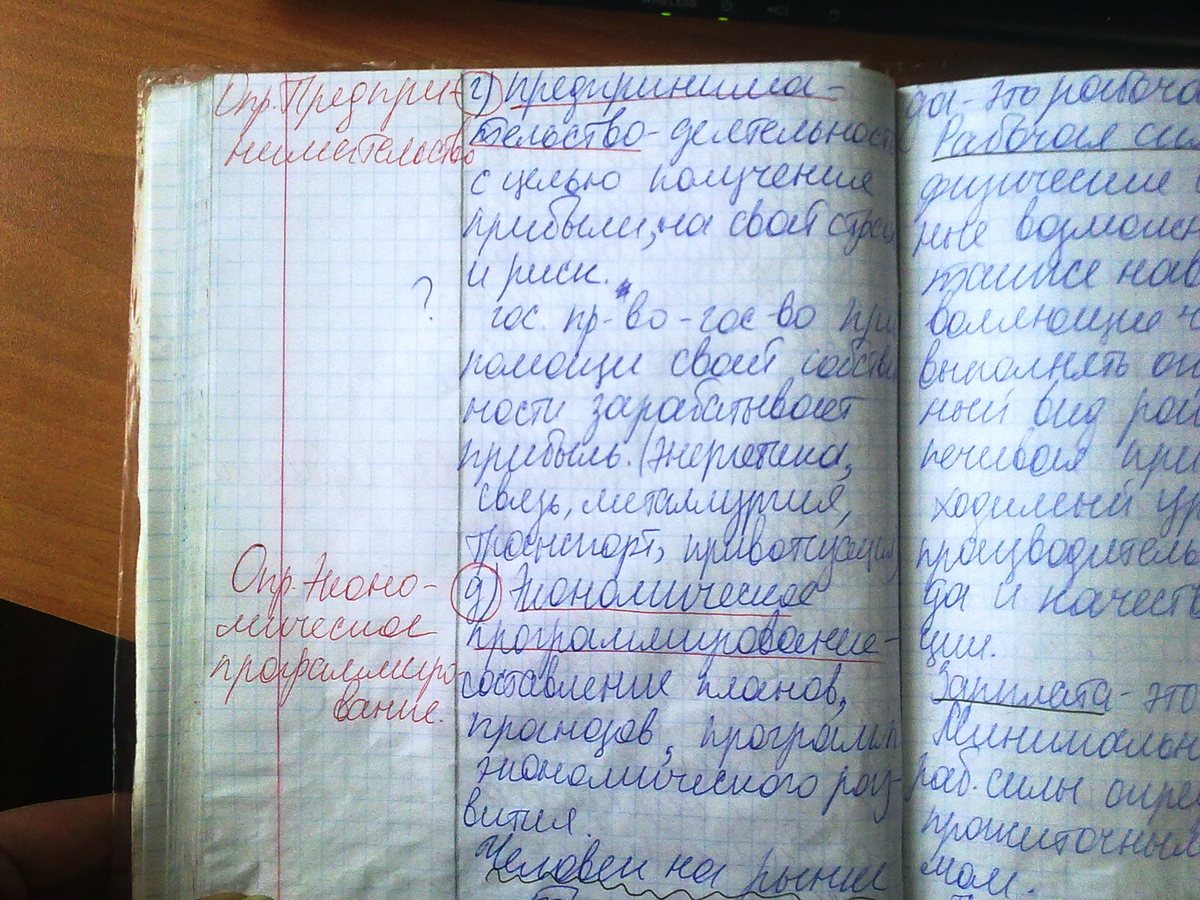 Опр. Предпри-
нимательство
?
Опр. Эконо-
мическое
программиро-
вание.
г) предпринима-
тельство - деятельность
с целью получения
прибыли, на свой страх
и риск.
гос. пр-во - гос-во при
помощи своей собствен
ности зарабатывает
прибыль. (Энергетика,
связь, металлургия,
транспорт, приватизация)
д) Экономическое
программирование -
составление планов,
прогнозов, программ
экономического раз-
вития.
Человек на рынке
да - это рабоча
Рабочая сил
физические
ные возможн
также нав
воляющие ч
выполнять оп
ный вид ра
печивая при
ходимый ур
производитель
да и качест
ции.
Зарплата - это
Минимальн
раб. силы опре
прожиточным
мом.